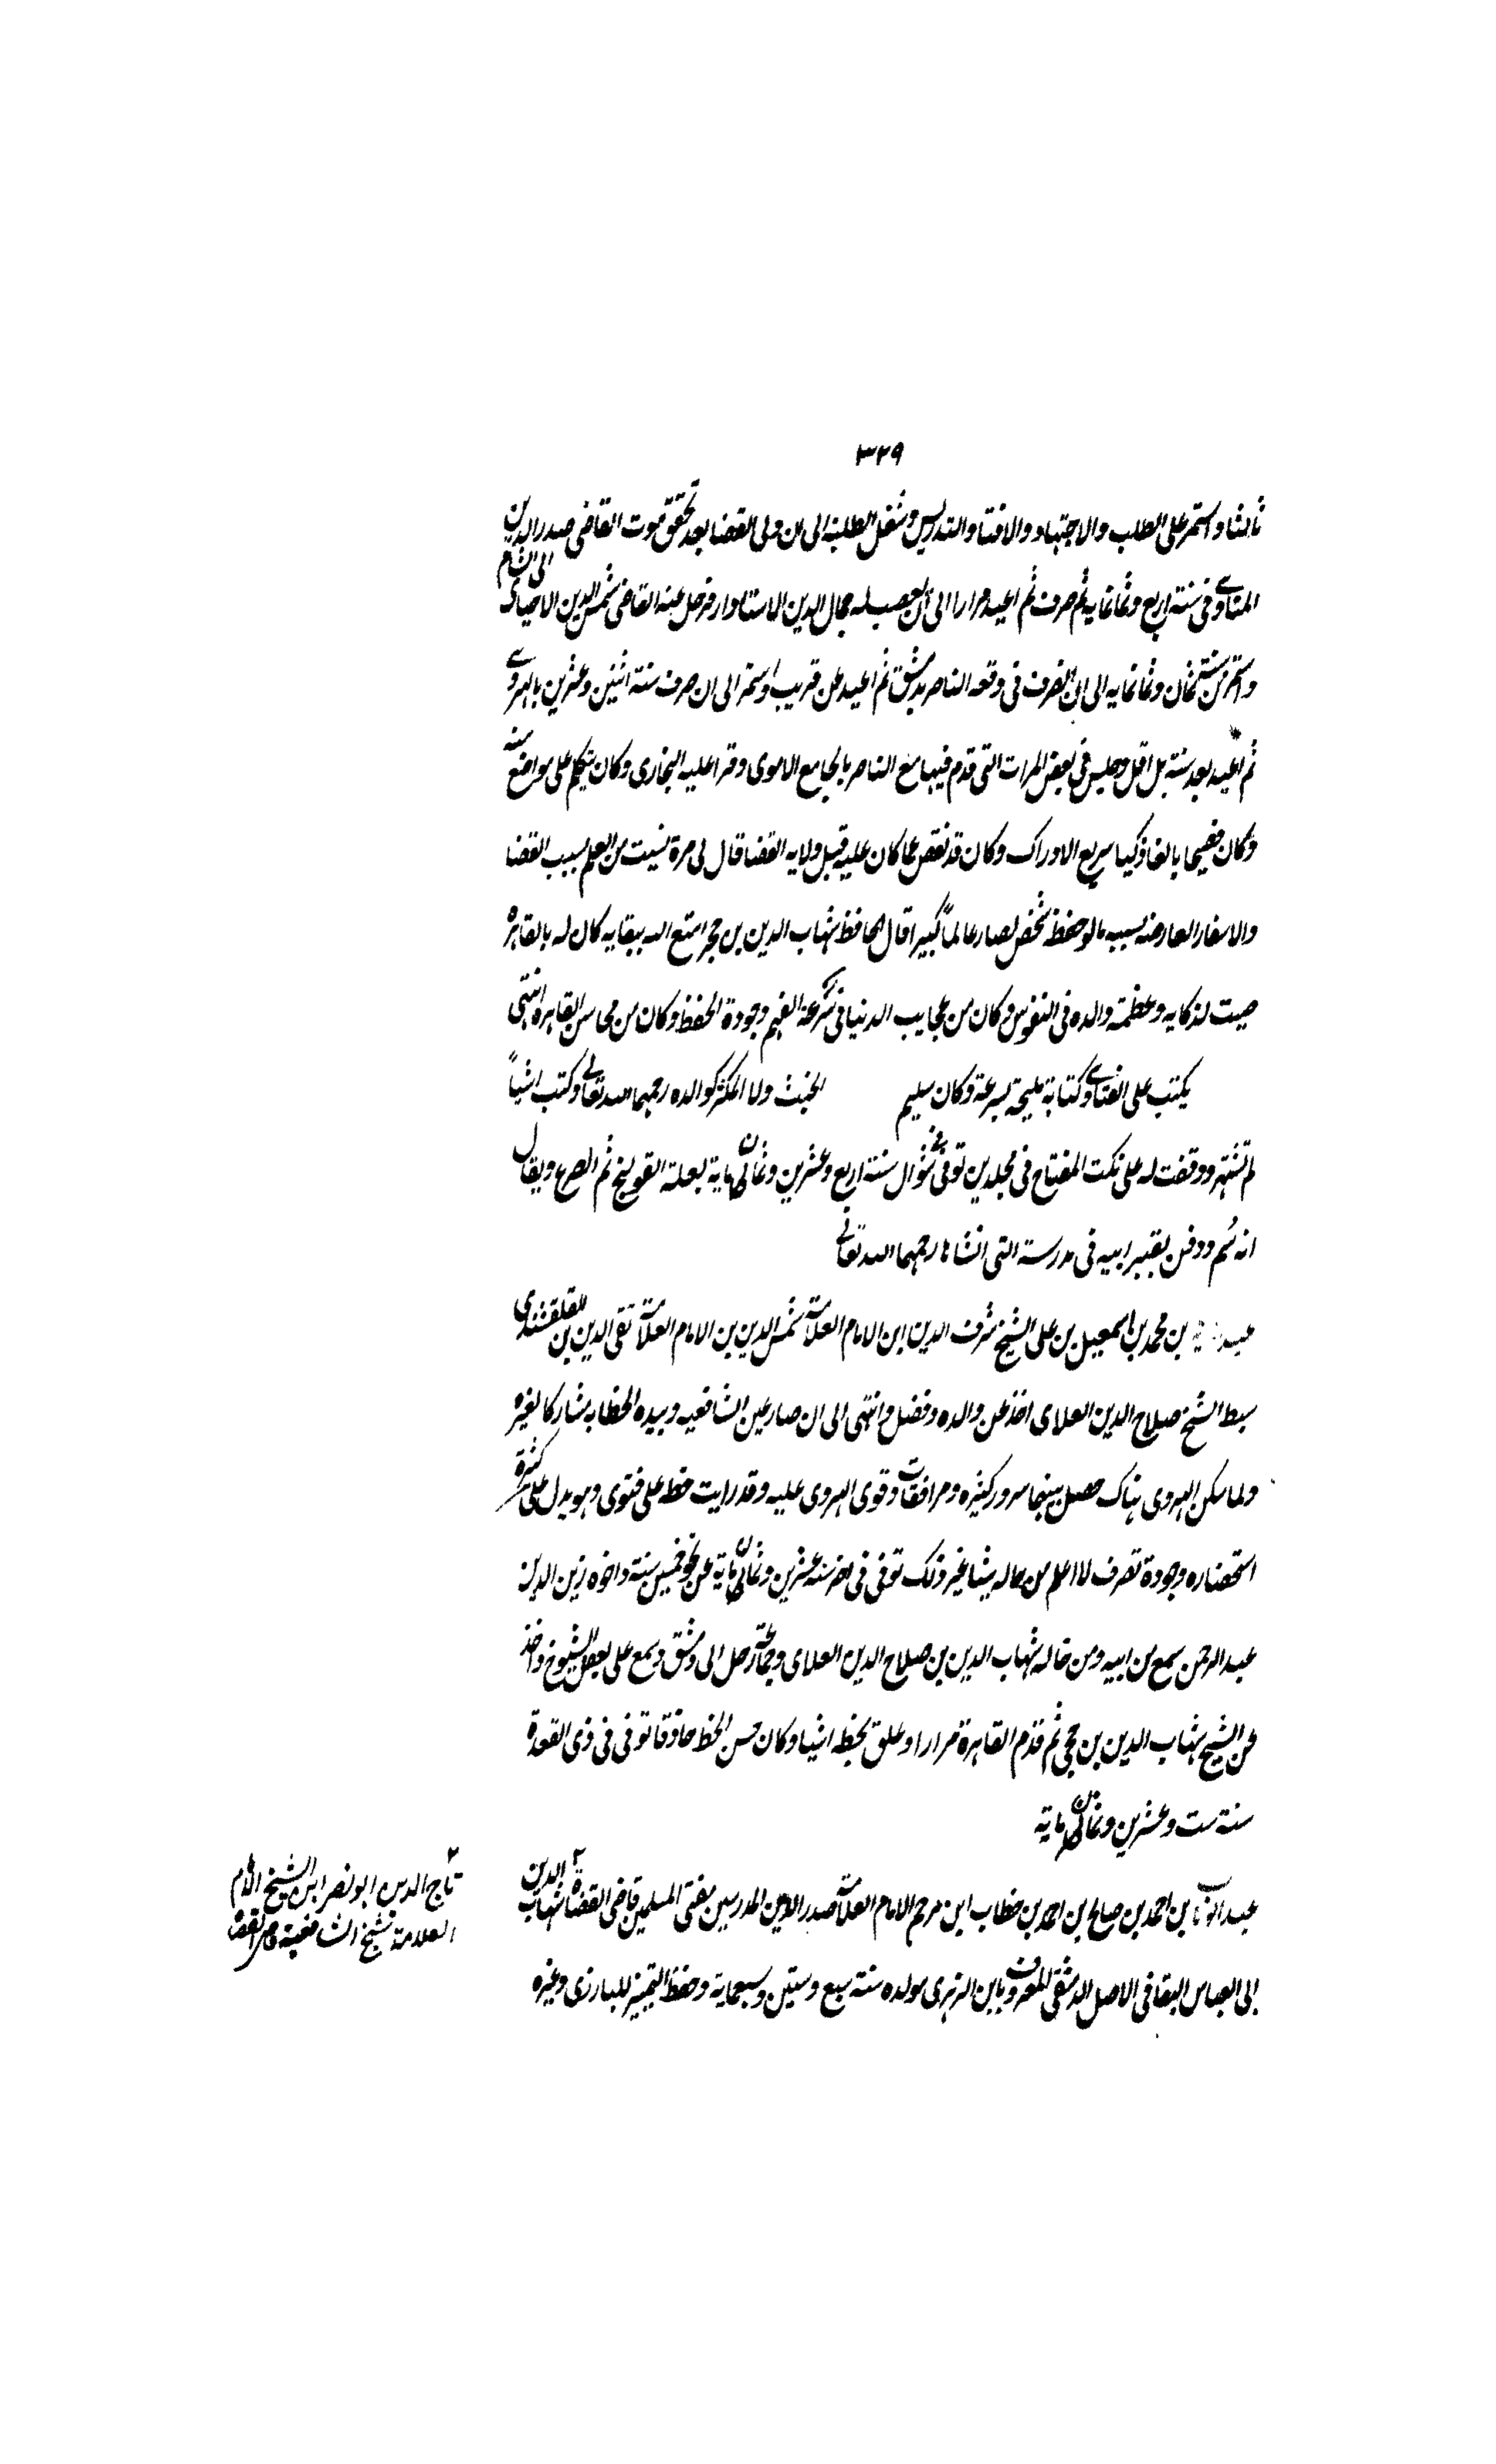 ٣٢٩
ثالثا واستمر على الطلب والاجتهاد والافتا والتدريس وشغل الطلبة الى ان ولى القضا بعد تحقق موت القاضى صدر الدين
المناوى فى سنة اربع وثمانمايه ثم صرف ثم اعيد مرارا الى ان تعصب له جمال الدين الاستادار فرحل عنه القاضى شمس الدين الاخناى الى الشام
واستمر من سنة ثمان وثمانمايه الى ان صرف فى وقعه الناصر بدمشق ثم اعيد عن قريب واستمر الى ان صرف سنة اثنين وعشرين بالهروى
ثم اعيد بعد سنة بل اقل وجلس فى بعض المرات التى قدم فيها مع الناصر بالجامع الاموى وقرا عليه البخارى وكان يتكلم على مواضع منه
وكان فصيحا بالغا ذكيا سريع الادراك وكان قد نقص عما كان عليه قبل ولايه القضا قال لى مرة نسيت من العلم بسبب القضا
والاسفار العارضه بسببه مالو حفظه شخص لصار عالماً كبيرا قال الحافظ شهاب الدين بن حجر امتع الله ببقايه كان له بالقاهرة
صيت لذكايه وعظمة والده فى النفوس وكان من عجايب الدنيا فى سرعة الفهم وجودة الحفظ وكان من محاسن القاهره انتهى
يكتب على الفتاوى كتابة مليحة بسرعة وكان سليم الخبث ولا المكر كوالده رحمهما الله تعالى وكتب اشياً
لم تشتهر ووقفت له على نكت المفتاح فى مجلدين توفى فى شوال سنة اربع وعشرين وثمان ماية بعلة القولنج ثم الصرع ويقال
انه سُم ودفن بقبر ابيه فى مدرسته التى انشاها رحمهما الله تعالى
بن محمد بن اسمعيل بن على الشيخ شرف الدين ابن الامام العلامة شمس الدين بن الامام العلامة تقى الدين بن القلقشندى
سبط الشيخ صلاح الدين العلاى اخذ عن والده وفضل وانتهى الى ان صار عين الشافعيه وبيده الخطابه مشاركا لغيره
ولما سكن الهروى هناك حصل بينهما سرور كثيره ومرافقات وقوى الهروى عليه وقد رايت خطه على فتوى وهو يدل على كثرة
استحضاره وجودة تصرف لا اعلم من حاله شيئا غير ذلك توفى فى اخر سنة عشرين وثمان ماية عن نحو خمسين سنة واخوه زين الدين
عبد الرحمن سمع من ابيه ومن خاله شهاب الدين بن صلاح الدين العلاى وجماعة رحل الى دمشق وسمع على بعض الشيوخ واخذ
عن الشيخ شهاب الدين بن حجى ثم قدم القاهرة مرارا وعلق بخطه اشيا وكان حسن الخط حاذقا توفى فى ذى القعدة
سنة ست وعشرين وثمان ماية
عبد الوهاب بن احمد بن صالح بن احمد بن خطاب ابن مرحم الامام العلامة صدر المدرسين مفتى المسلمين قاضى القضاة شهاب الدين
تاج الدين ابو نصر ابن الشيخ الامام
العلامة شيخ الشافعية قاضى القضاة
ابى العباس البقاعى الاصل الدمشقى المعروف بابن الزهرى مولده سنة سبع وستين وسبعماية وحفظ التمييز للبارزى وغيره